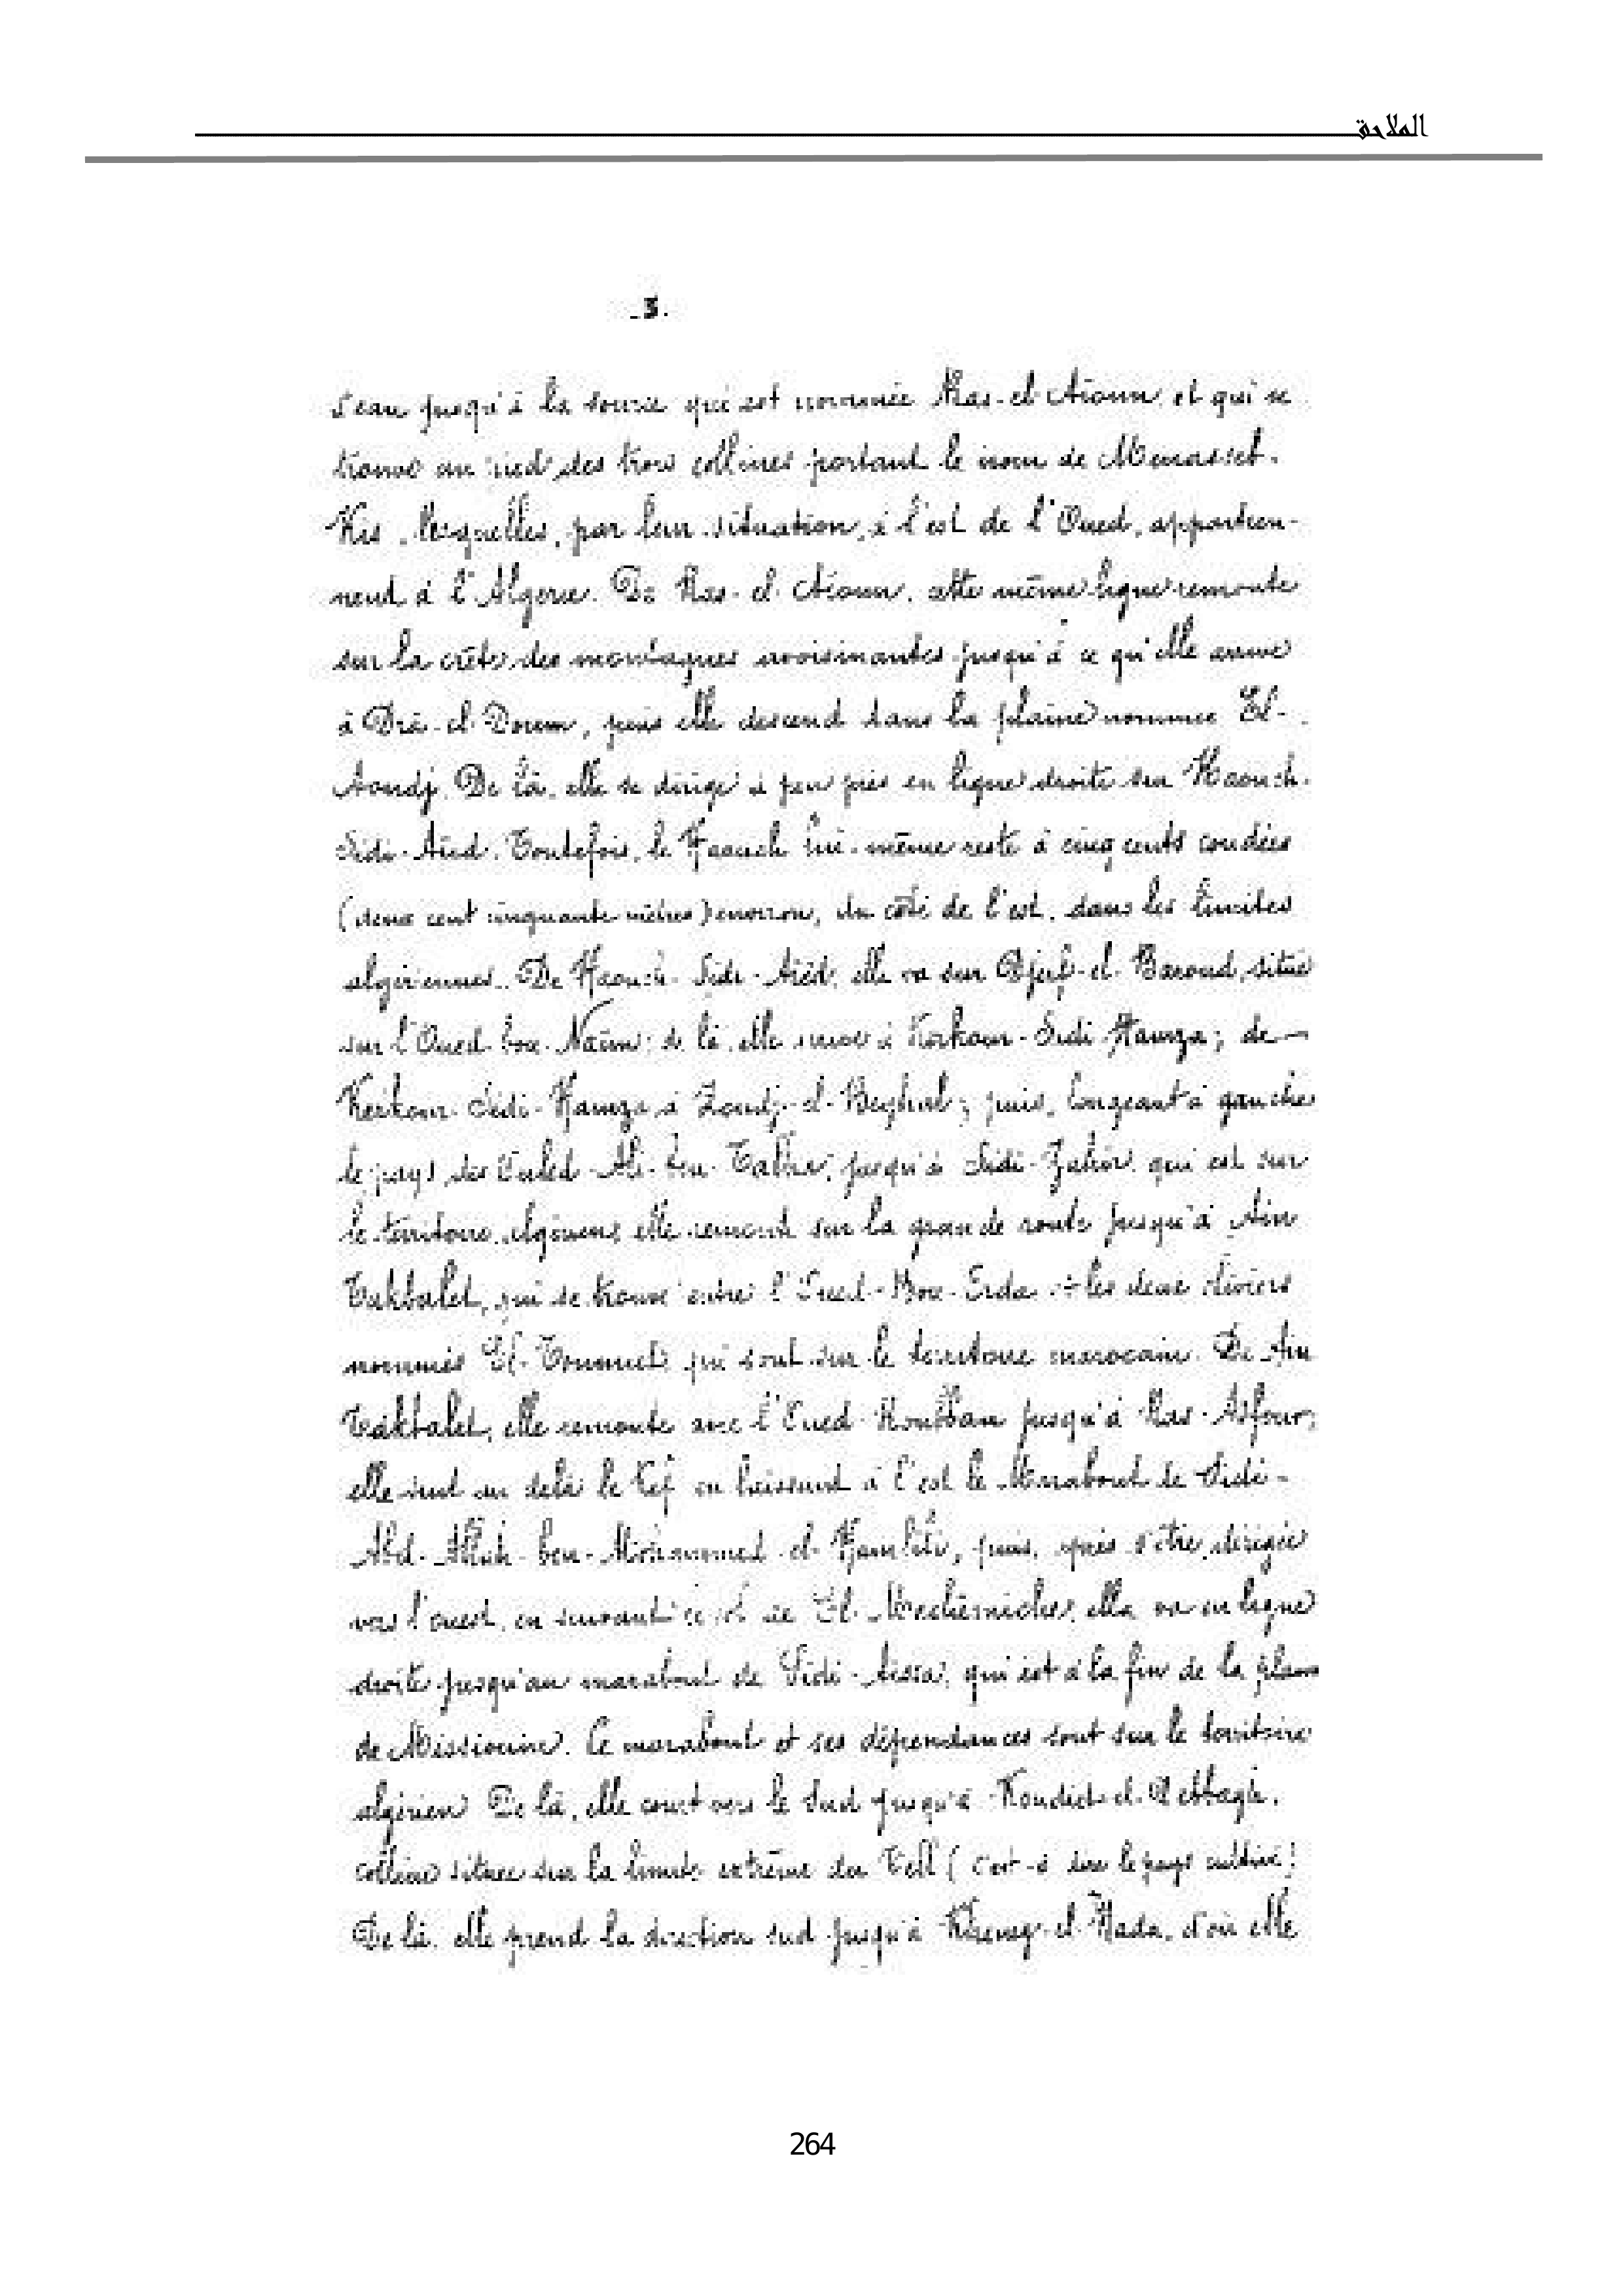 الملاحق
_3.
d'eau jusqu'à la source qui est nommée Ras-el-Aïoun, et qui se
trouve au pied des trois collines portant le nom de Menasseb-
Kis, lesquelles, par leur situation, à l'est de l'Oued, appartien-
nent à l'Algérie. De Ras-el-Aïoun, cette même ligne remonte
sur la crête des montagnes avoisinantes jusqu'à ce qu'elle arrive
à Drâ-el-Doum, puis elle descend dans la plaine nommée El-
Aoudj. De là, elle se dirige à peu près en ligne droite sur Haouch-
Sidi-Aïed. Toutefois, le Haouch lui-même reste à cinq cents coudées
(deux cent cinquante mètres) environ, du côté de l'est, dans les limites
algériennes. De Haouch-Sidi-Aïed, elle va sur Djerf-el-Baroud, situé
sur l'Oued-bou-Naïm; de là, elle arrive à Kerkour-Sidi-Hamza; de
Kerkour-Sidi-Hamza à Zoudj-el-Beghal; puis, longeant à gauche
le pays des Ouled-Ali-ben-Talha, jusqu'à Sidi-Zahir, qui est sur
le territoire algérien, elle remonte sur la grande route jusqu'à Aïn
Takbalet, qui se trouve entre l'Oued-Bou-Erda et les deux oliviers
nommés El-Toumiet qui sont sur le territoire marocain. De Aïn
Takbalet, elle remonte avec l'Oued Roubban jusqu'à Ras-Asfour;
elle suit au delà le Kef en laissant à l'est le Marabout de Sidi-
Abd-Allah-ben-Mohammed-el-Hamliti, puis, après s'être dirigée
vers l'ouest, en suivant le col de El-Mechêmiche, elle va en ligne
droite jusqu'au marabout de Sidi-Aïssa, qui est à la fin de la plaine
de Missiouin. Ce marabout et ses dépendances sont sur le territoire
algérien. De là, elle court vers le Sud jusqu'à Koudiet-el-Debbagh,
colline située sur la limite extrême du Tell (c'est-à-dire le pays cultivé)
De là, elle prend la direction sud jusqu'à Kheneg-el-Hada, d'où elle
264